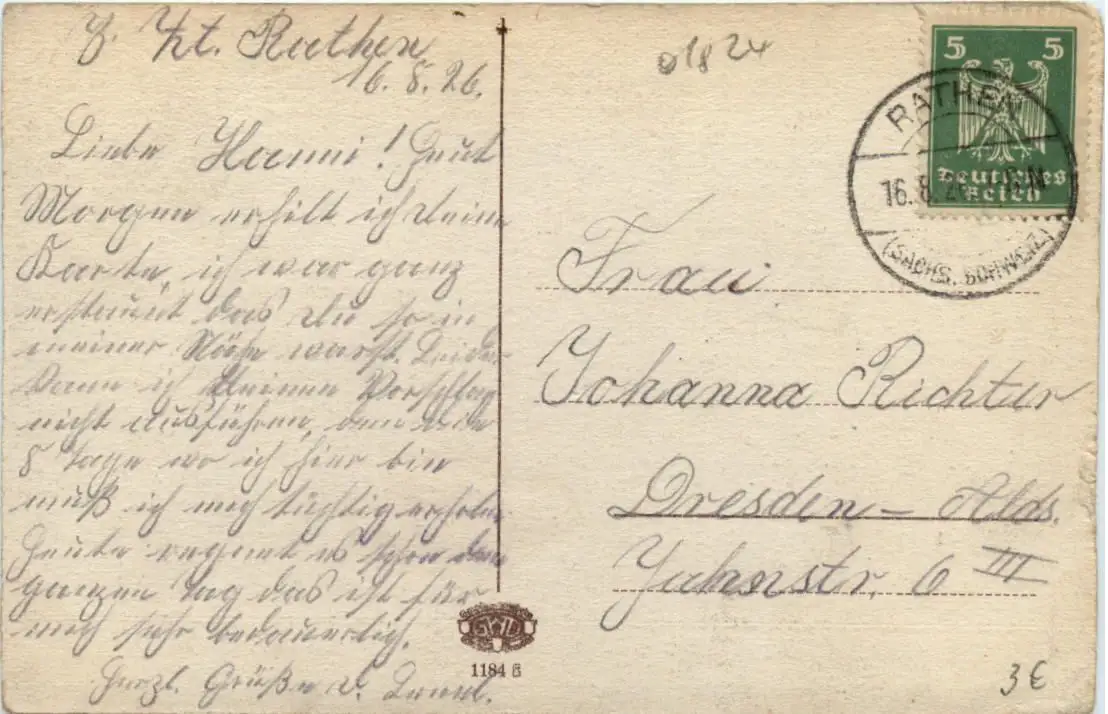 Zt. Rathen
16.8.26.
Liebe Hanni! Heut
Morgen erhilt ich deine
Karte, ich war ganz
erstaunt das du so in
meiner Nähe warst. Leider
kann ich deinen Vorschlag
nicht ausführen, den die
8 Tage wo ich hier bin
muß ich mich tüchtig erholen
Heute regnet es schon den
ganzen Tag das ist für
mich sehr bedauerlich.
Herzl. Grüße v.
01824
5 5
Deutsches
Reich
RATHEN
16.8.26
(SÄCHS. SCHWEIZ)
Frau
Johanna Richter
Dresden – Alds.
Jahnstr. 6 III
1184 B
3€